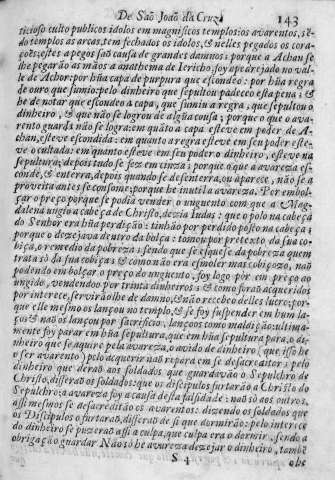 De São Joaõ da Cruz. 143
ticioso culto publicos idolos em magnificos templos: os avarentos, sẽ-
do templos as arcas, tem fechados os idolos, & nelles pegados os cora-
ções; estes a pegos saõ causa de grandes damnos; porque a Achan se
lhe pegarão as mãos a anathema de Iericho, foy apedrejado no val-
le de Achor: por hũa capa de purpura que escondeo: por hũa regra
de ouro que sumio: pelo dinheiro que sepultou padeceo esta pena; &
he de notar que escondeo a capa, que sumiu a regra, que sepultou o
dinheiro, & que não se logrou de algũa cousa; porque o que o ava-
rento guarda naõ se logra: em quãto a capa esteve em poder de A-
chan, esteve escondida: em quanto a regra esteve em seu poder este-
ve occultada: em quanto esteve em seu poder o dinheiro, esteve na
sepultura; depois tudo se fez em cinza: porque o que a avareza es-
conde, & enterra, depois quando se desenterra, ou aparece, não se a
proveita antes se consome; porque he inutil a avareza. Por embol-
çar o preço, porque se podia vender o unguento com que a Mag-
dalena ungio a cabeça de Christo, dezia Iudas: que o polo na cabeça
do Senhor era hũa perdição: tinhão por perdido posto na cabeça;
porque o dezejava dentro da bolça: tomou por pretexto da sua co-
biça, o remedio da pobreza: sendo que se esquese da pobreza quem
trata só da sua cobiça: & como não era esmoler mas cobiçozo, naõ
podendo embolçar o preço do unguento, foy logo pòr em preço ao
ungido, vendendoo por trinta dinheiros: & como foraõ acqueridos
por interece, serviraõlhe de damno, & não recebeo delles lucro; por-
que elle mesmo os lançou no templo, & se foy suspender em hum la-
ço & naõ os lançou por sacrificio, lançoos como maldição: ultima-
mente foy parar em hũa sepultura, que em hũa sepultura para, o di-
nheiro que se aquire pela avareza, o avido de dinheiro (que isso he
o ser avarento) pelo acquerir naõ repara em se desacreditar; pelo
dinheiro que deraõ aos soldados que guardavão o Sepulchro de
Christo, disseraõ os soldados: que os discipulos furtarão a Christo do
Sepulchro: a avareza foy a causa desta falsidade: naõ só aos outros,
assi mesmos se desacreditão os avarentos: dizendo os soldados que
os Discipulos o furtaraõ, disseraõ de si que dormiraõ: pelo interece
do dinheiro se puzeraõ assi a culpa, que culpa era o dormir, sendo a
obrigação guardar Naõ só he avareza dezejar o dinheiro, tambẽ
S 4 o he